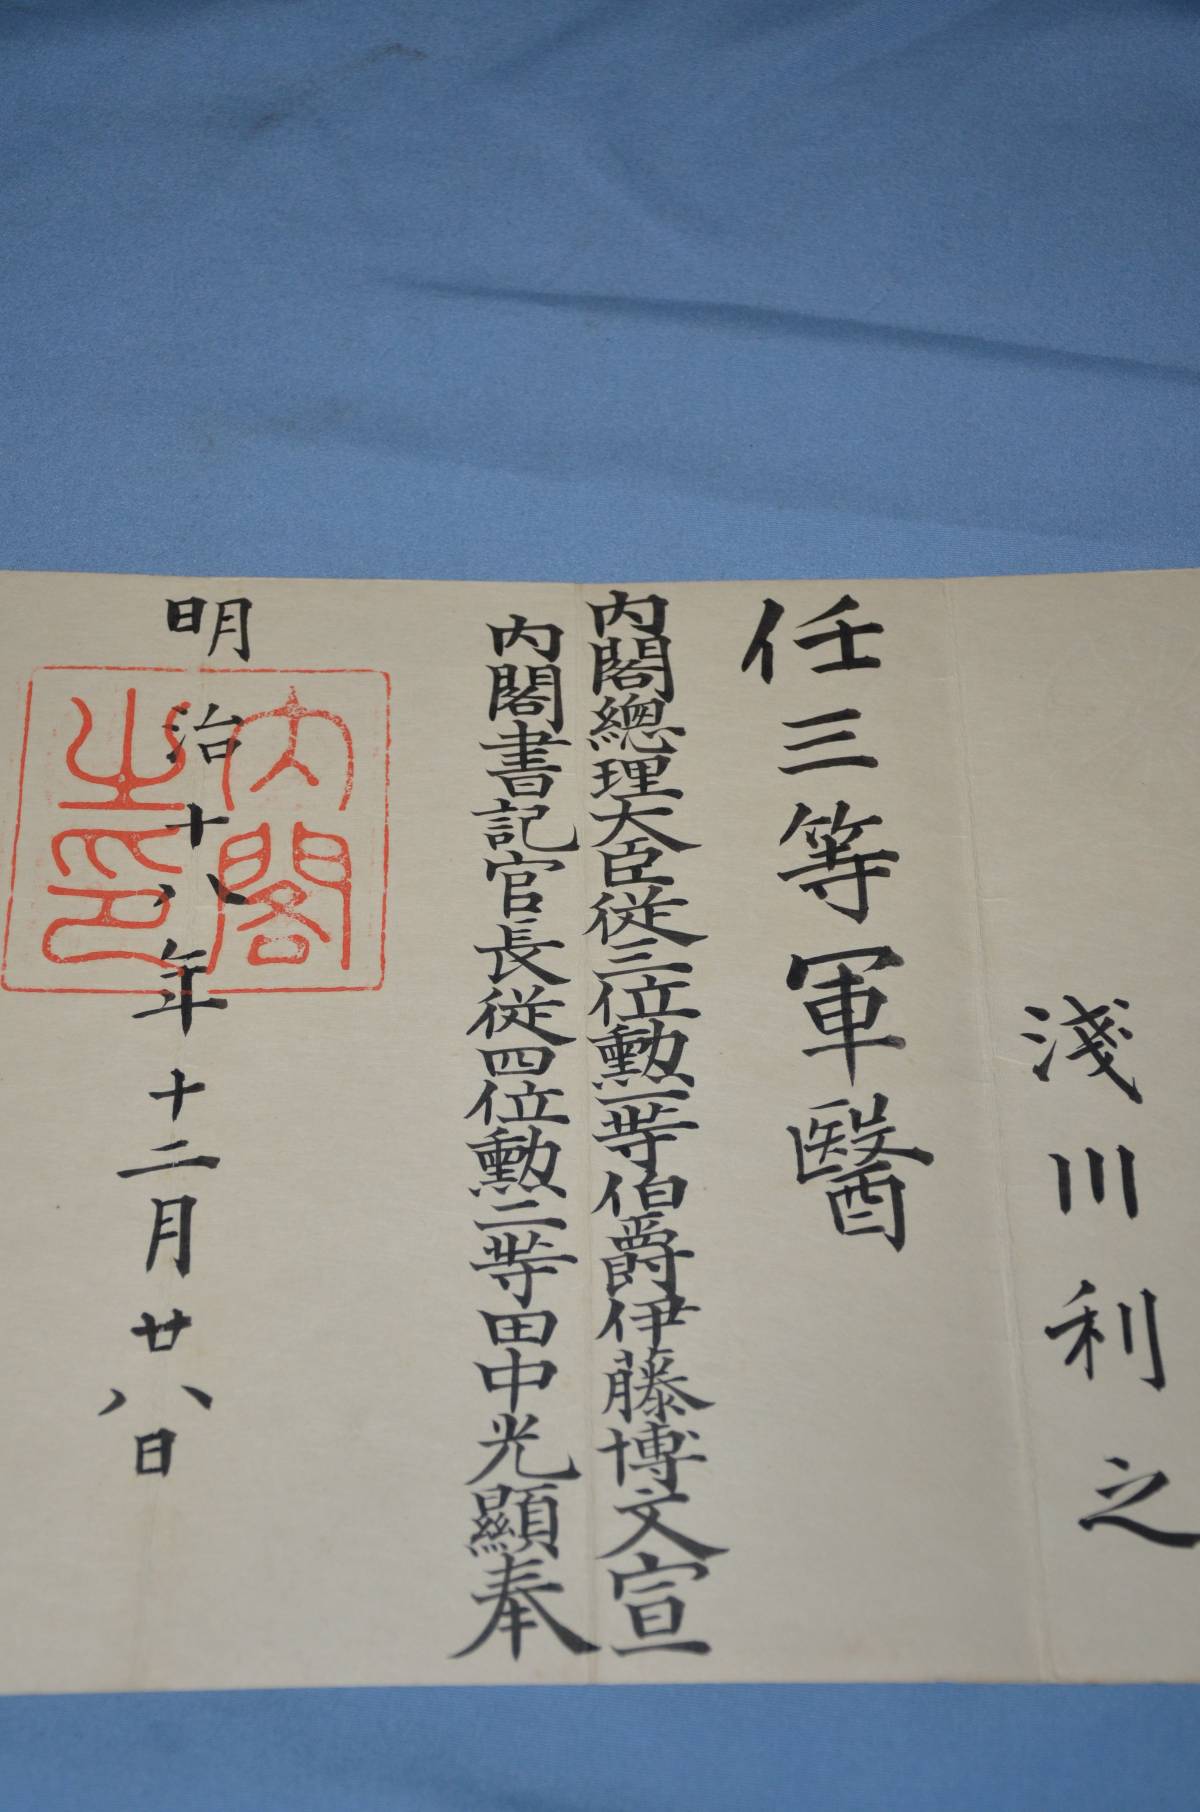 淺川利之
任三等軍醫
內閣總理大臣從三位勳一等伯爵伊藤博文宣
內閣書記官長從四位勳二等田中光顯奉
明治十八年十二月廿八日
內閣
之印